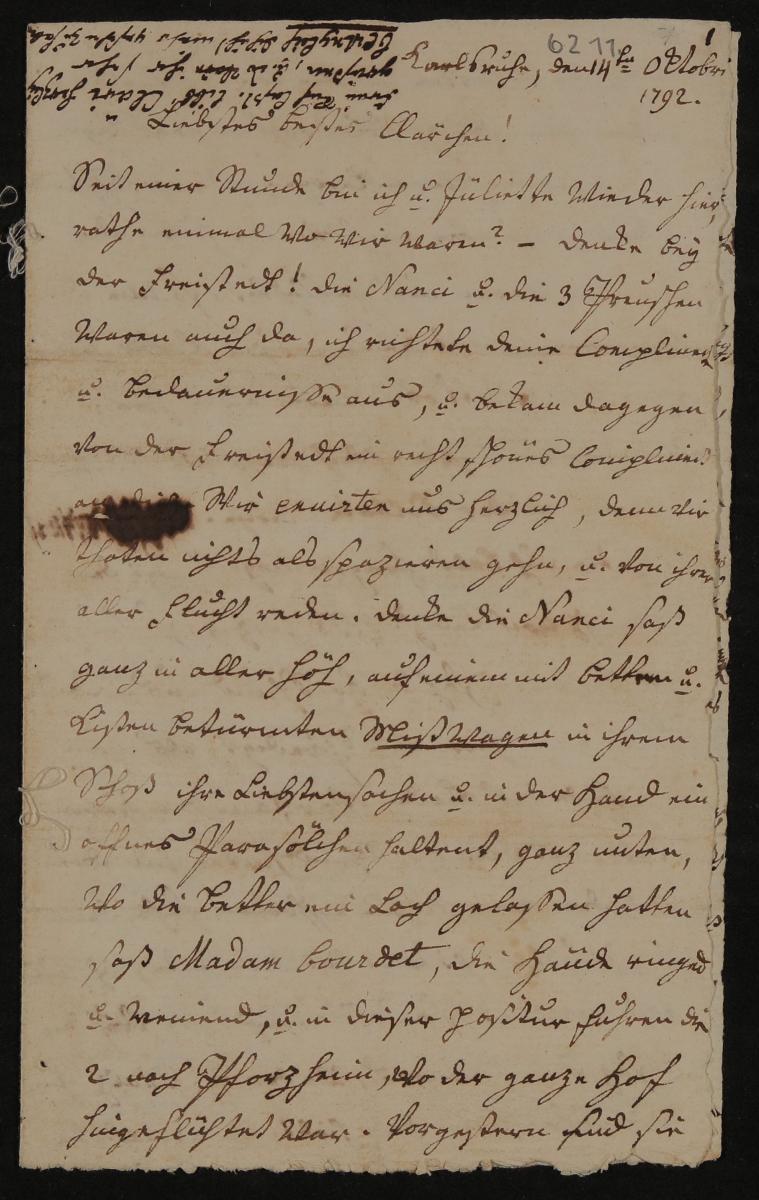 6211.
1
Karlsruhe, den 14ten Oktobri
1792.
Liebstes bestes Clärchen!
Seit einer Stunde bin ich u. Juliette wieder hier,
rathe einmal wo wir waren? – denke bey
der Freistedt! die Nanci u. die 3 Preuschen
waren auch da, ich richtete deine Compliment
u. bedauernisse aus, u. bekam dagegen
von der Freistedt ein recht schönes Compliment
Wir ennirten uns herzlich, denn wir
thaten nichts als spazieren gehn, u. von ihrer
aller Flucht reden. denke die Nanci saß
ganz in aller Höh, auf einem mit betten u.
Kisten betürmten Mist Wagen in ihrem
Schoß ihre Liebstensachen u. in der Hand ein
offnes Parasölchen haltent, ganz unten,
wo die better ein Loch gelassen hatten
saß Madam bourdet, die Hände ringed
u. weniend, u. in dieser positur fuhren die
2 nach Pforzheim, wo der ganze Hof
hingeflüchtet war. Vorgestern sind sie